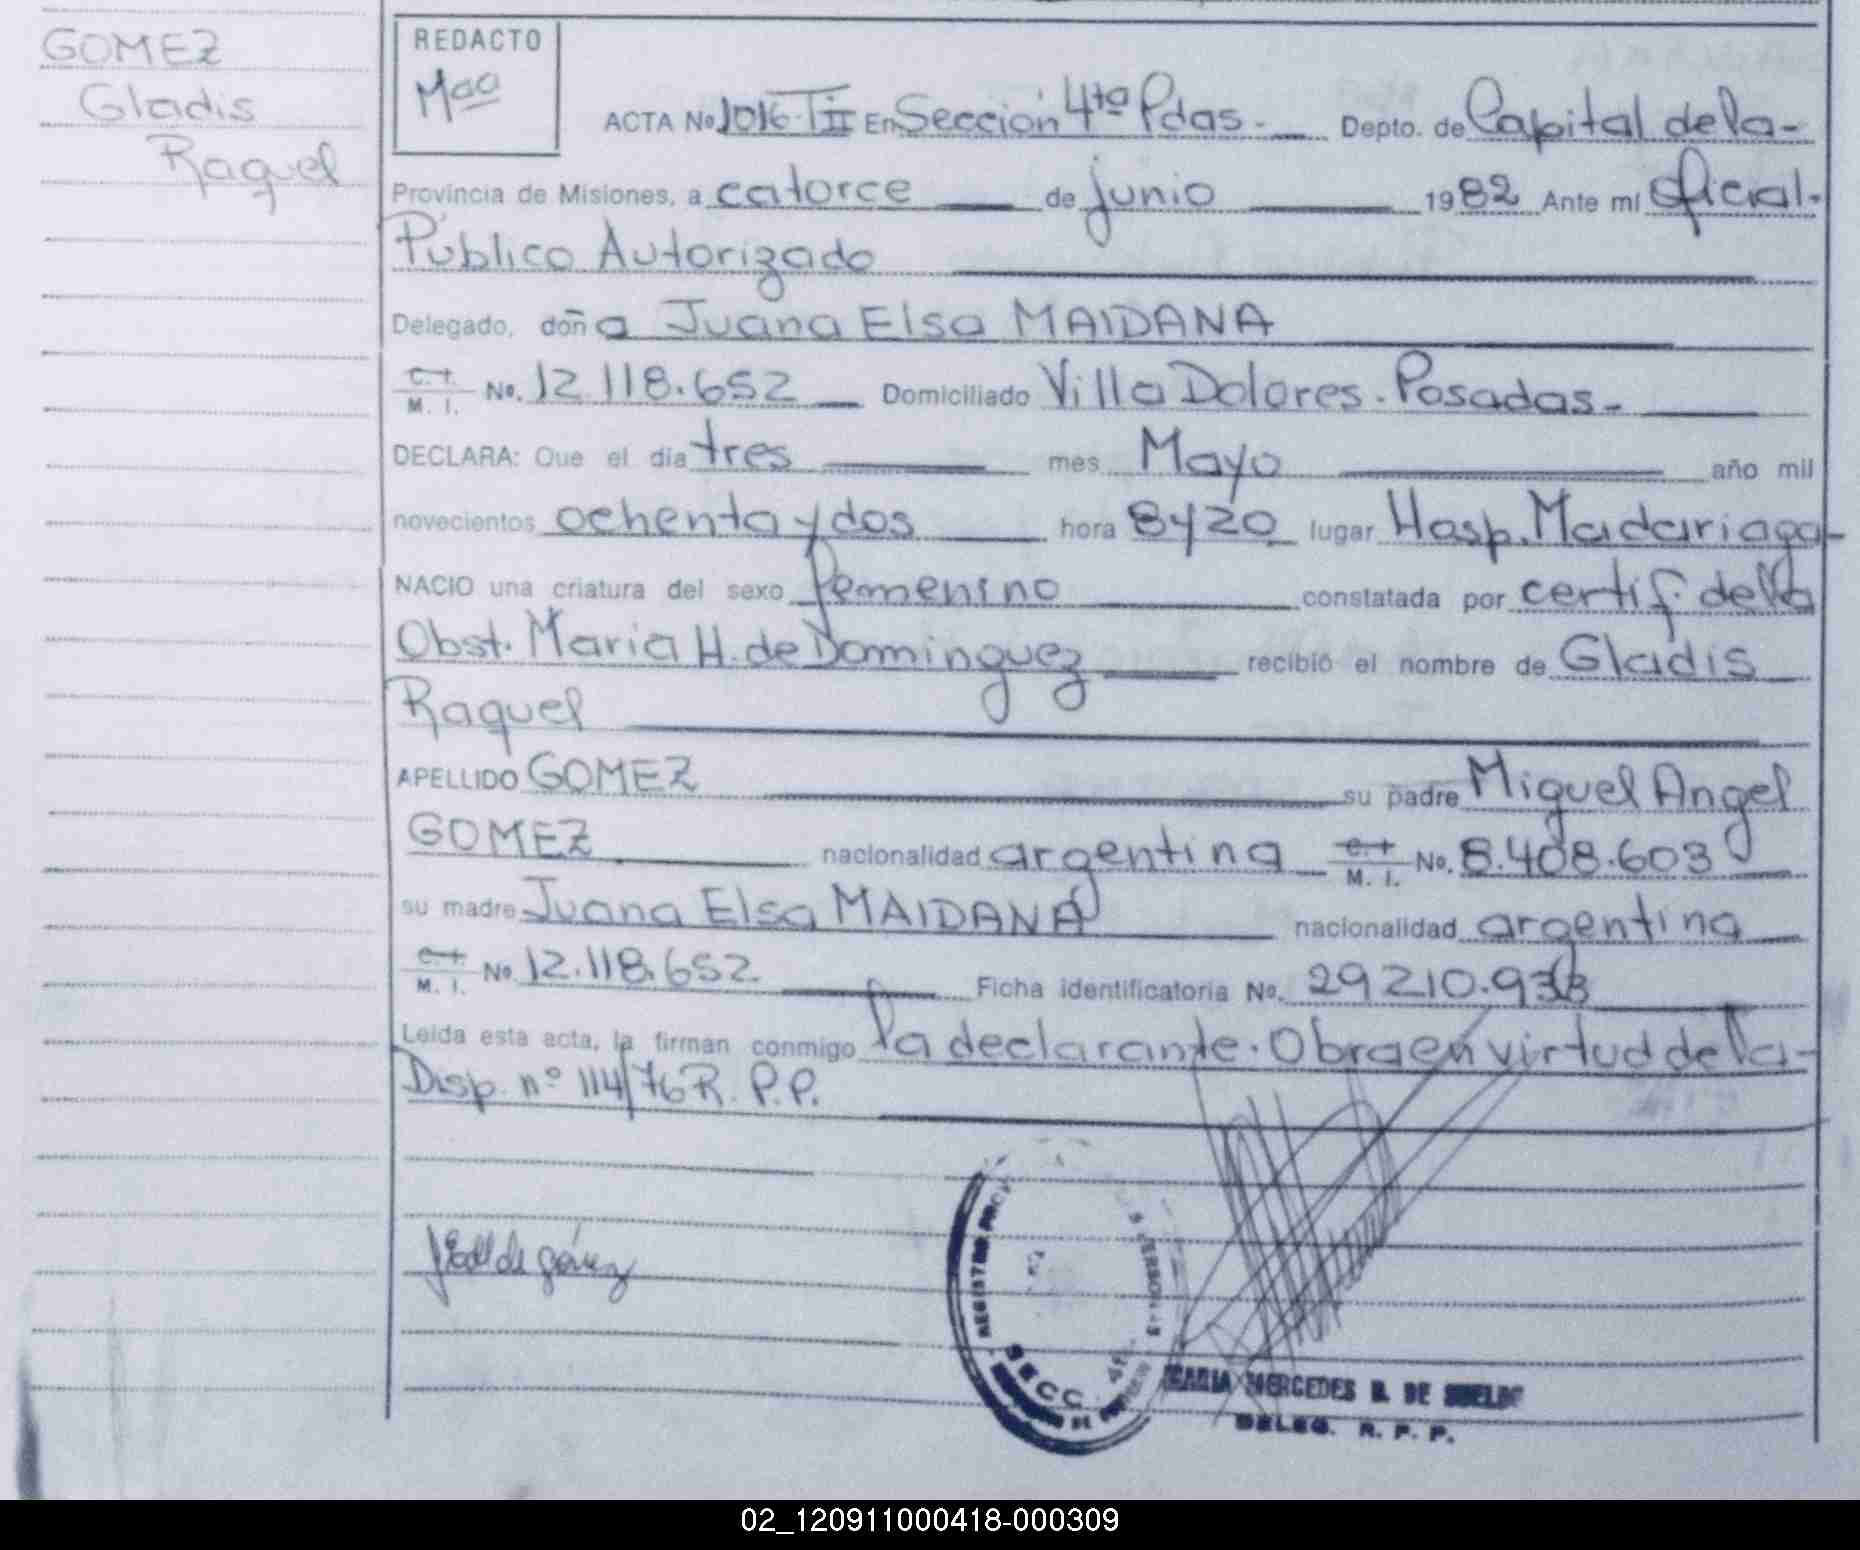 GOMEZ
Gladis
Raquel
REDACTO
Maa
ACTA No 1016 T II En Sección 4ta Pdas. Depto. de Capital de la-
Provincia de Misiones, a catorce de junio 1982 Ante mi Oficial.
Público Autorizado
Delegado, doña Juana Elsa MAIDANA
C.I. M. I. No. 12.118.652 Domiciliado Villa Dolores. Posadas-
DECLARA: Que el dia tres mes Mayo año mil
novecientos ochenta y dos hora 8y20 lugar Hosp. Madariaga-
NACIO una criatura del sexo femenino constatada por certif. de la
Obst. Maria H. de Dominguez recibió el nombre de Gladis
Raquel
APELLIDO GOMEZ su padre Miguel Angel
GOMEZ nacionalidad argentina C.I. M. I. No. 8.408.603
su madre Juana Elsa MAIDANA nacionalidad argentina
C.I. M. I. No. 12.118.652 Ficha identificatoria No. 29210.933
Leida esta acta, la firman conmigo la declarante. Obra en virtud de la-
Disp. nº 114/76 R. P. P.
de gómez
REGISTRO PROV
SECC. 4ª
MARIA MERCEDES B. DE
DELEG. R. P. P.
02_120911000418-000309